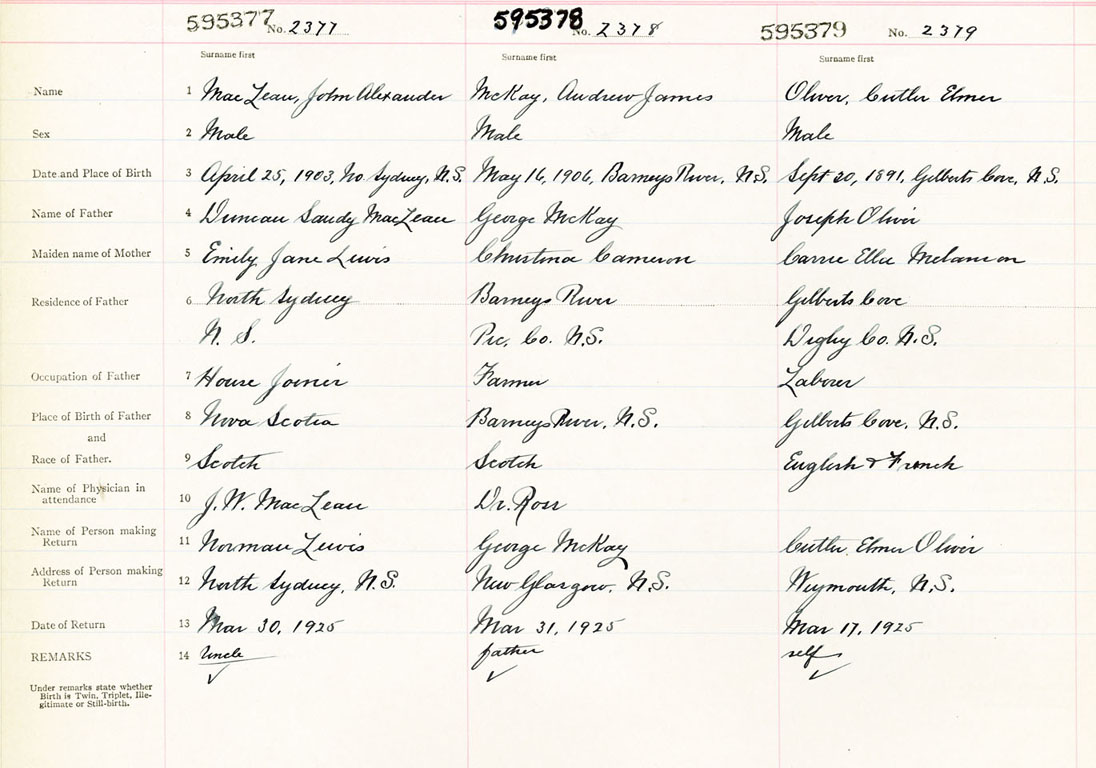 595377 No. 2377 595378 No. 2378 595379 No. 2379
Surname first Surname first Surname first
Name 1 MacLean, John Alexander McKay, Andrew James Oliver, Cutler Elmer
Sex 2 Male Male Male
Date and Place of Birth 3 April 25, 1903, No. Sydney, N.S. May 16, 1906, Barneys River, N.S. Sept 20, 1891, Gilberts Cove, N.S.
Name of Father 4 Duncan Sandy MacLean George McKay Joseph Oliver
Maiden name of Mother 5 Emily Jane Lewis Christina Cameron Carrie Ellie Melanson
Residence of Father 6 North Sydney Barneys River Gilberts Cove
N. S. Pic. Co. N.S. Digby Co. N.S.
Occupation of Father 7 House Joiner Farmer Laborer
Place of Birth of Father 8 Nova Scotia Barneys River, N.S. Gilberts Cove, N.S.
and
Race of Father. 9 Scotch Scotch English & French
Name of Physician in
attendance 10 J. W. MacLean Dr. Ross
Name of Person making
Return 11 Norman Lewis George McKay Cutler Elmer Oliver
Address of Person making
Return 12 North Sydney, N.S. New Glasgow, N.S. Weymouth, N.S.
Date of Return 13 Mar 30, 1925 Mar 31, 1925 Mar 17, 1925
REMARKS 14 Uncle father self
Under remarks state whether
Birth is Twin, Triplet, Ille-
gitimate or Still-birth.